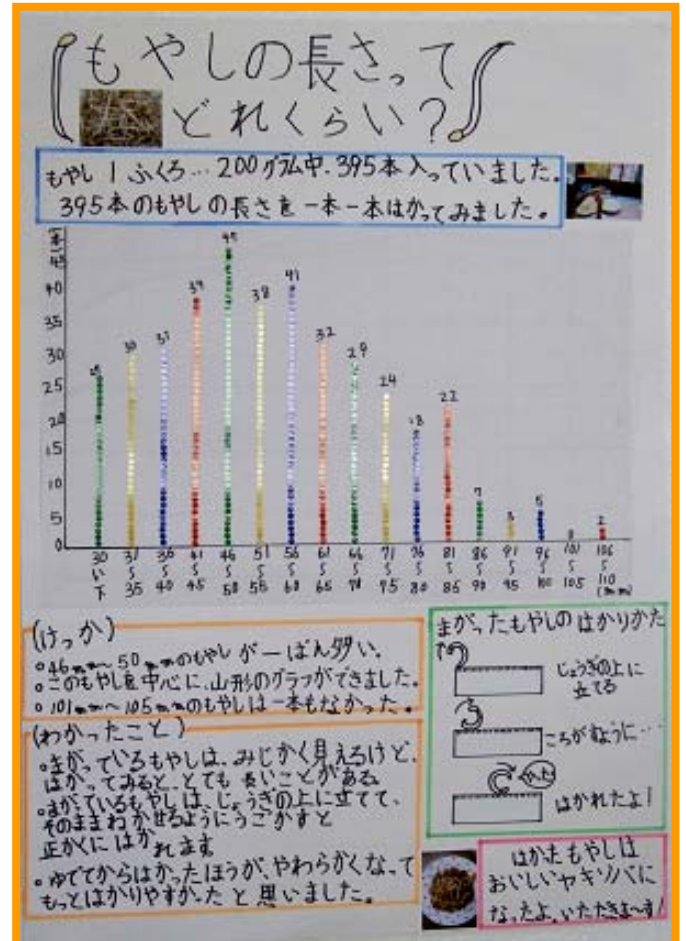 もやしの長さって
どれくらい？
もやし1ふくろ…200グラム中、395本入っていました。
395本のもやしの長さを一本一本はかってみました。
(本)
45
40
35
30
25
20
15
10
5
0
30 31 39 38 41 32 29 24 18 22 7 3 5 0 2
30い下 31〜35 36〜40 41〜45 46〜50 51〜55 56〜60 61〜65 66〜70 71〜75 76〜80 81〜85 86〜90 91〜95 96〜100 101〜105 106〜110(mm)
(けっか)
。46mm〜50mmのもやしが一ばん多い。
。このもやしを中心に、山形のグラフができました。
。101mm〜105mmのもやしは一本もなかった。
(わかったこと)
。まがっているもやしは、みじかく見えるけど、
はかってみると、とても長いことがある。
。まがっているもやしは、じょうぎの上に立てて、
そのままねかせるようにうごかすと
正かくにはかれます
。ゆでてからはかったほうが、やわらかくなって
もっとはかりやすかったと思いました。
まがったもやしのはかりかた
じょうぎの上に
立てる
ころがすように…
はかれたよ！
はかたもやしは
おいしいヤキソバに
なったよ。いただきま〜す！